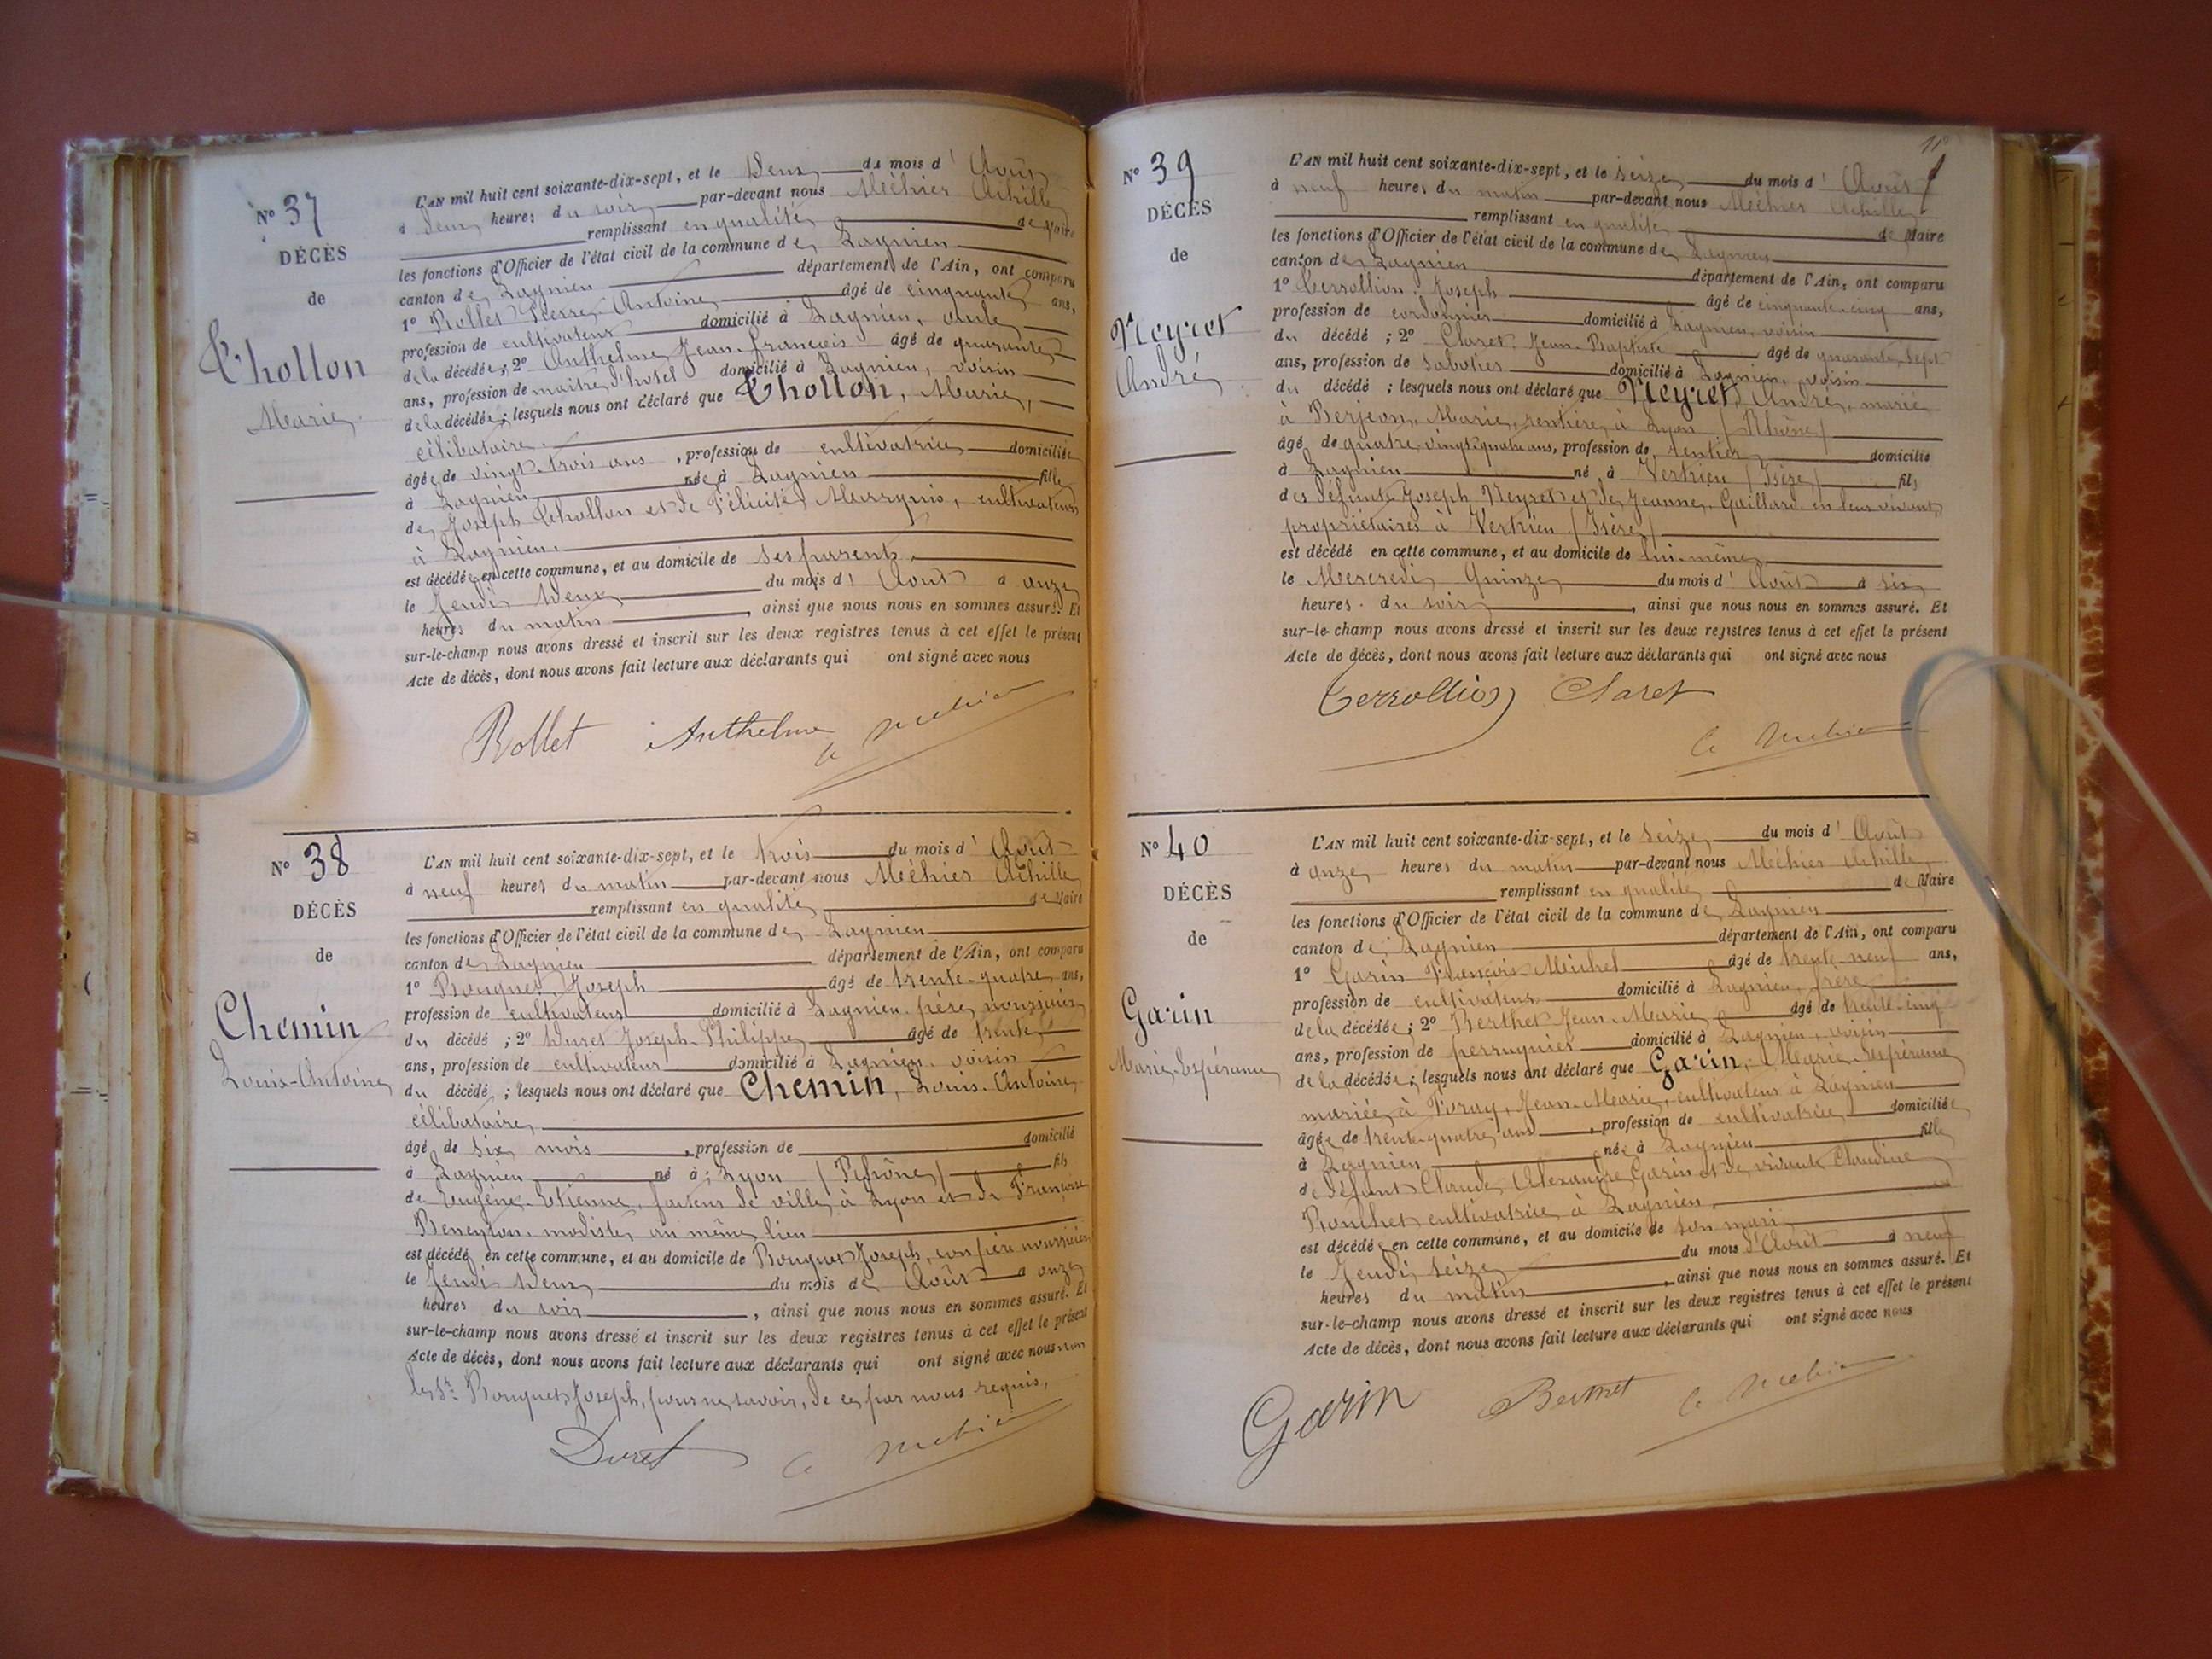 N° 37
DÉCÈS
de
Chollon
Marie
L'AN mil huit cent soixante-dix-sept, et le Deux du mois d'Août
à deux heures du soir par-devant nous Méhier Achille
remplissant en qualité de Maire
les fonctions d'Officier de l'état civil de la commune de Lagnieu
canton de Lagnieu département de l'Ain, ont comparu
1° Rollet Pierre-Antoine âgé de cinquante ans,
profession de cultivateur domicilié à Lagnieu, oncle
de la décédée ; 2° Anthelme Jean-François âgé de quarante
ans, profession de maître d'hôtel domicilié à Lagnieu, voisin
de la décédée ; lesquels nous ont déclaré que Chollon, Marie,
célibataire
âgée de vingt-trois ans, profession de cultivatrice domiciliée
à Lagnieu née à Lagnieu fille
de Joseph Chollon et de Félicité, cultivateurs
à Lagnieu.
est décédée en cette commune, et au domicile de ses parents,
le Jeudi Deux du mois d'Août à onze
heures du matin, ainsi que nous nous en sommes assuré. Et
sur-le-champ nous avons dressé et inscrit sur les deux registres tenus à cet effet le présent
Acte de décès, dont nous avons fait lecture aux déclarants qui ont signé avec nous
Rollet Anthelme
N° 38
DÉCÈS
de
Chemin
Louis-Antoine
L'AN mil huit cent soixante-dix-sept, et le trois du mois d'Août
à neuf heures du matin par-devant nous Méhier Achille
remplissant en qualité de Maire
les fonctions d'Officier de l'état civil de la commune de Lagnieu
canton de Lagnieu département de l'Ain, ont comparu
1° Bouquet Joseph âgé de trente-quatre ans,
profession de cultivateur domicilié à Lagnieu, père nourricier
du décédé ; 2° Duret Joseph-Philippe âgé de trente
ans, profession de cultivateur domicilié à Lagnieu, voisin
du décédé ; lesquels nous ont déclaré que Chemin, Louis-Antoine,
célibataire,
âgé de six mois, profession de domicilié
à Lagnieu né à Lyon (Rhône) fils
de Eugène-Etienne, facteur de ville, à Lyon et de Françoise
Beneyton, modiste, au même lieu
est décédé en cette commune, et au domicile de Bouquet Joseph, son père nourricier
le Jeudi Deux du mois de Août à onze
heures du soir, ainsi que nous nous en sommes assuré. Et
sur-le-champ nous avons dressé et inscrit sur les deux registres tenus à cet effet le présent
Acte de décès, dont nous avons fait lecture aux déclarants qui ont signé avec nous non
le Sr Bouquet Joseph, pour ne savoir, de ce par nous requis,
Duret
N° 39
DÉCÈS
de
Neyret
André
L'AN mil huit cent soixante-dix-sept, et le seize du mois d'Août
à neuf heures du matin par-devant nous Méhier Achille
remplissant en qualité de Maire
les fonctions d'Officier de l'état civil de la commune de Lagnieu
canton de Lagnieu département de l'Ain, ont comparu
1° Cerrollion Joseph âgé de cinquante-cinq ans,
profession de cordonnier domicilié à Lagnieu, voisin
du décédé ; 2° Claret Jean-Baptiste âgé de quarante-sept
ans, profession de sabotier domicilié à Lagnieu, voisin
du décédé ; lesquels nous ont déclaré que Neyret, André, marié
à Berjeon, Marie, rentière, à Lyon (Rhône)
âgé de quatre-vingt-quatre ans, profession de rentier domicilié
à Lagnieu né à Vertrieu (Isère) fils
des défunts Joseph Neyret et de Jeanne Gaillard, en leur vivant,
propriétaires à Vertrieu (Isère)
est décédé en cette commune, et au domicile de lui-même
le Mercredi Quinze du mois d'Août à six
heures du soir, ainsi que nous nous en sommes assuré. Et
sur-le-champ nous avons dressé et inscrit sur les deux registres tenus à cet effet le présent
Acte de décès, dont nous avons fait lecture aux déclarants qui ont signé avec nous
Claret
N° 40
DÉCÈS
de
Garin
Marie-Espérance
L'AN mil huit cent soixante-dix-sept, et le seize du mois d'Août
à onze heures du matin par-devant nous Méhier Achille
remplissant en qualité de Maire
les fonctions d'Officier de l'état civil de la commune de Lagnieu
canton de Lagnieu département de l'Ain, ont comparu
1° Garin François-Michel âgé de trente-neuf ans,
profession de cultivateur domicilié à Lagnieu, frère
de la décédée ; 2° Berthet Jean-Marie âgé de trente-cinq
ans, profession de perruquier domicilié à Lagnieu, voisin
de la décédée ; lesquels nous ont déclaré que Garin, Marie-Espérance
mariée à Foray, Jean-Marie, cultivateur à Lagnieu
âgée de trente-quatre ans, profession de cultivatrice domiciliée
à Lagnieu née à Lagnieu fille
de défunt Claude Alexandre Garin et de vivante Claudine
Ronchet cultivatrice à Lagnieu,
est décédée en cette commune, et au domicile de son mari
le Jeudi seize du mois d'Août à neuf
heures du matin, ainsi que nous nous en sommes assuré. Et
sur-le-champ nous avons dressé et inscrit sur les deux registres tenus à cet effet le présent
Acte de décès, dont nous avons fait lecture aux déclarants qui ont signé avec nous
Garin Berthet